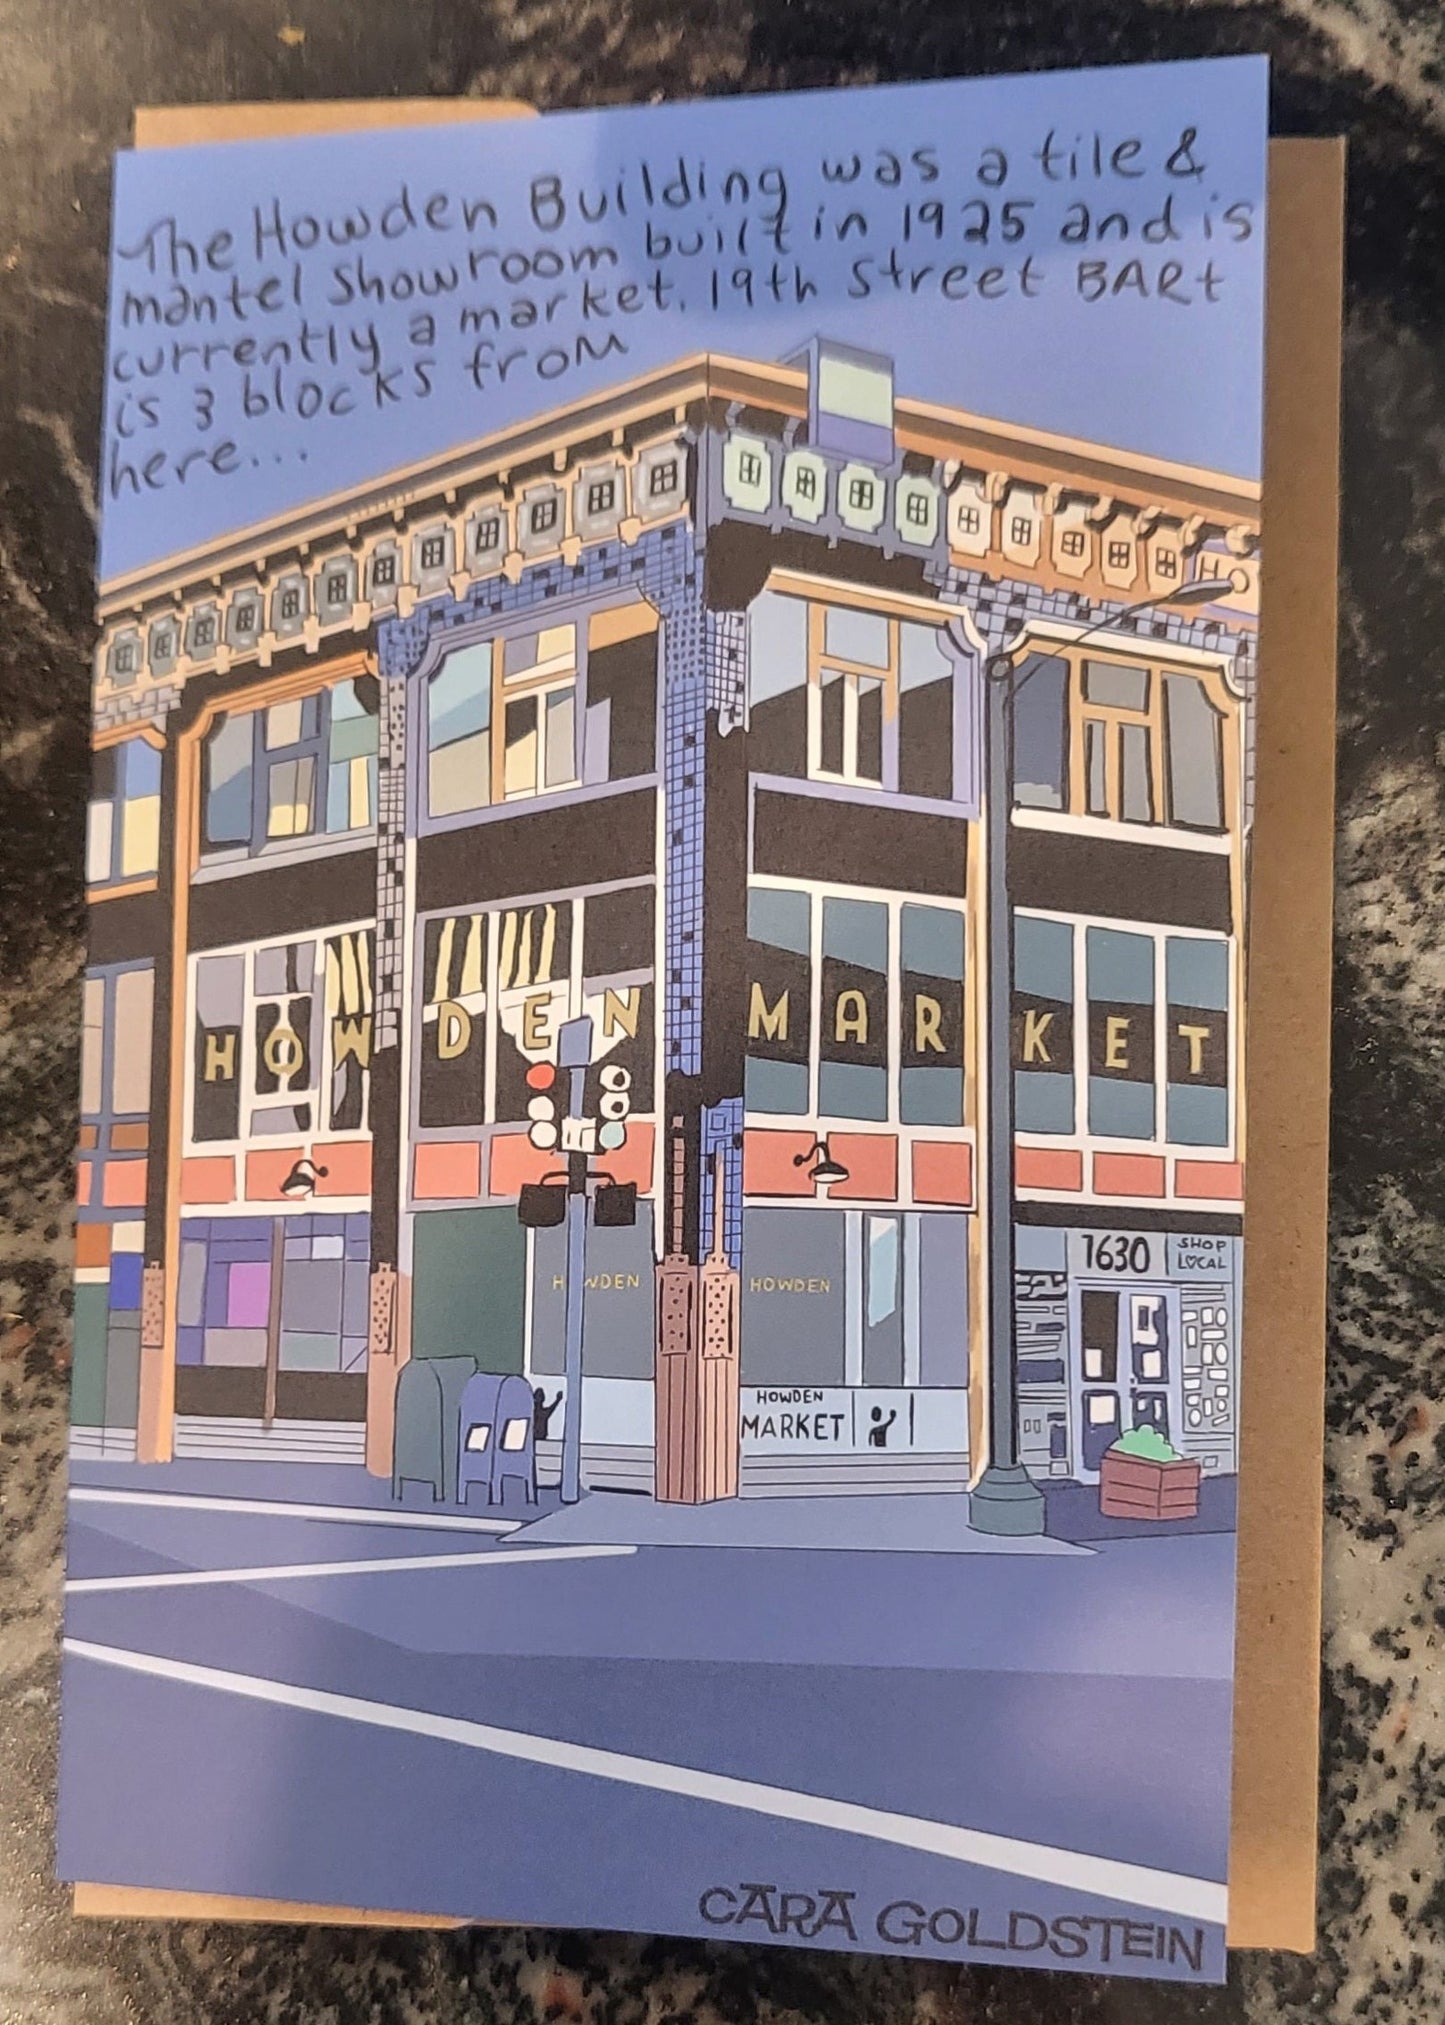 The Howden Building was a tile &
mantel showroom built in 1925 and is
currently a market. 19th street BARt
is 3 blocks from
here...
HO
HOWDEN MARKET
1630
SHOP
LOCAL
HOWDEN
HOWDEN
HOWDEN
MARKET
CARA GOLDSTEIN